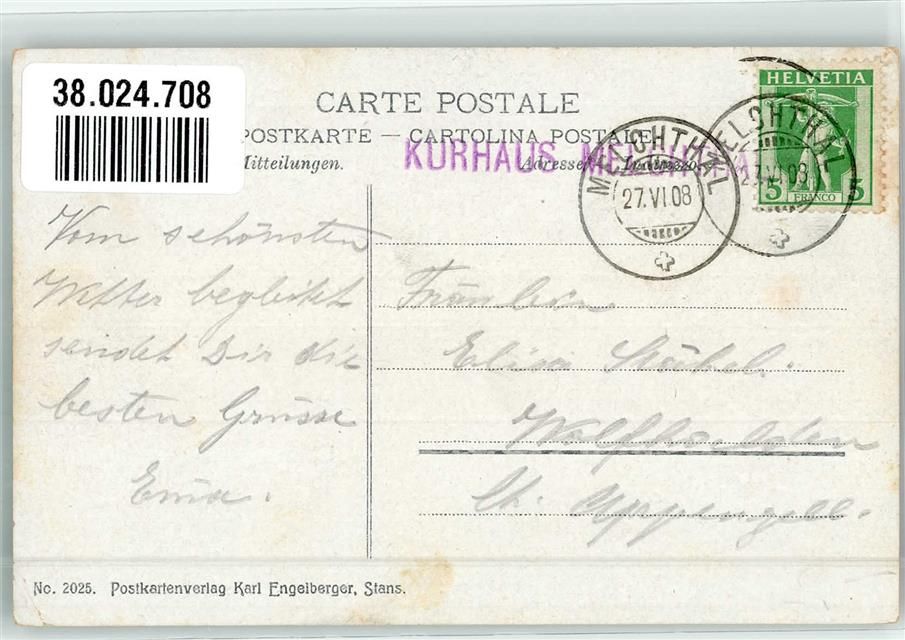 38.024.708
CARTE POSTALE
POSTKARTE — CARTOLINA POSTALE
Mitteilungen.
Adresse
KURHAUS MELCHTHAL
HELVETIA
5 FRANCO 5
MELCHTHAL
27.VI.08
MELCHTHAL
27.VI.08
Vom schönsten
Wetter begleitet
sendet Dir die
besten Grüsse
Fräulein
Elisa
Wolfhalden
Ct. Appenzell.
No. 2025. Postkartenverlag Karl Engelberger, Stans.